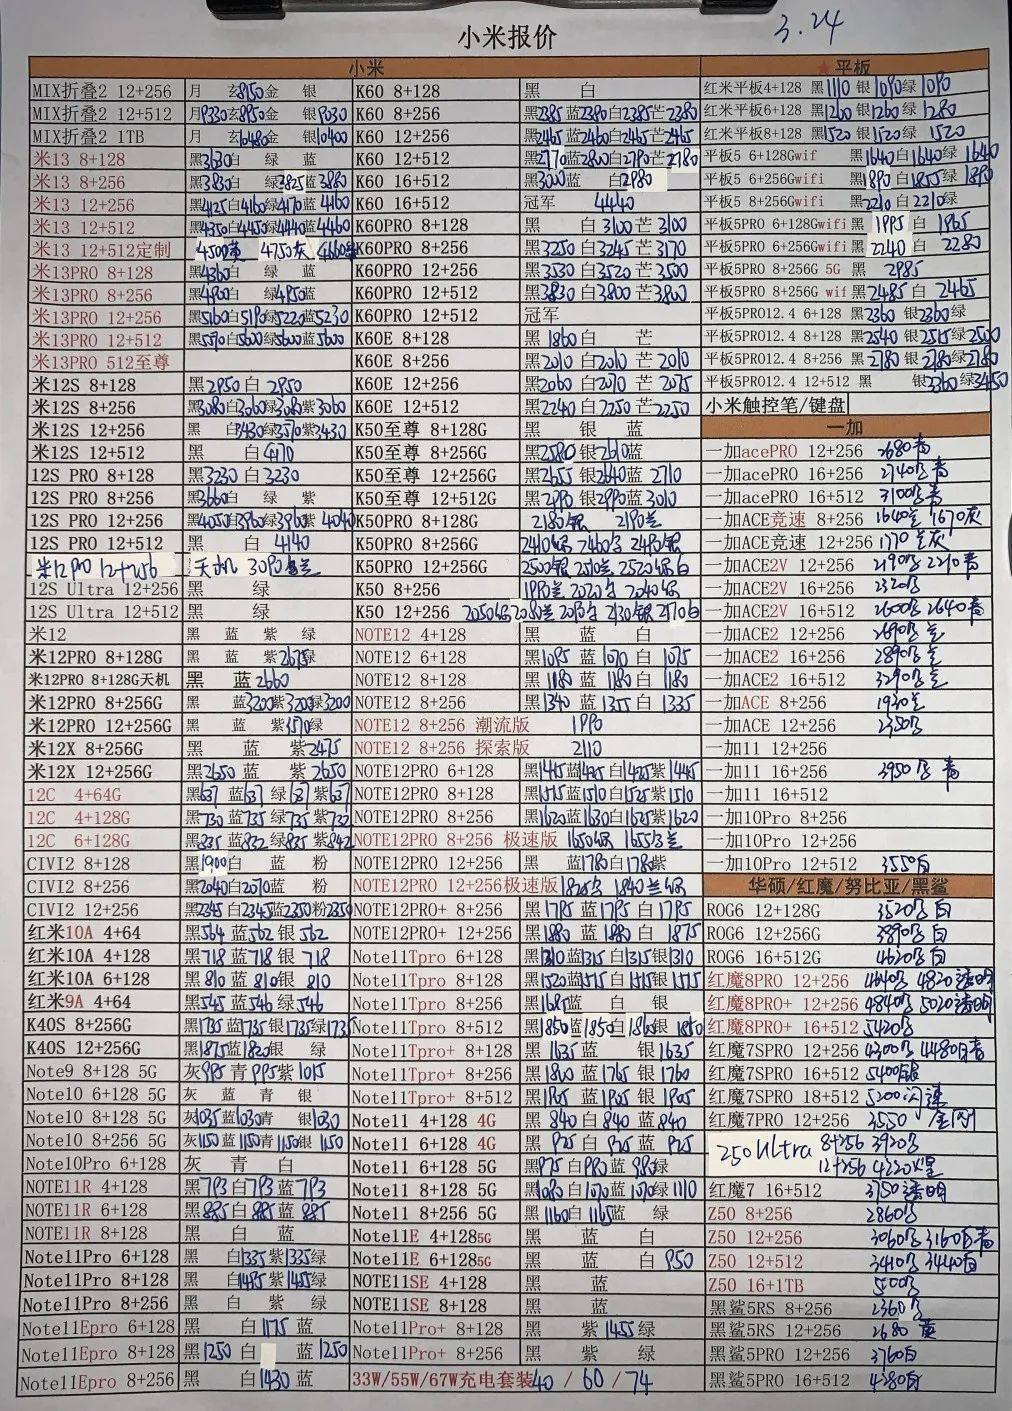 3.24
小米报价
小米
★平板
MIX折叠2 12+256 月 玄8950金 银 K60 8+128 黑 白 红米平板4+128 黑1110 银1090绿 1090
MIX折叠2 12+512 月9330玄8950金 银9030 K60 8+256 黑2385蓝2380白2385芒2380 红米平板6+128 黑1260 银1260绿 1280
MIX折叠2 1TB 月 玄10480金 银10400 K60 12+256 黑2465蓝2460白2465芒2465 红米平板8+128 黑1520 银1520绿 1520
米13 8+128 黑3630白 绿 蓝 K60 12+512 黑2770蓝2800白2790芒2780 平板5 6+128Gwif 黑1640白1640绿 1640
米13 8+256 黑3830白 绿3825蓝3880 K60 16+512 黑3020蓝 白2980 平板5 6+256Gwifi 黑1890 白1855绿 1890
米13 12+256 黑4125白4160绿4170蓝4160 K60 16+512 冠军 4440 平板5 8+256Gwifi 黑2210 白2210绿
米13 12+512 黑4350白4450绿4440蓝4460 K60PRO 8+128 黑 白3100芒3100 平板5PRO 6+128Gwifi 黑 1995 白 1965
米13 12+512定制 4500 4750灰 4660 K60PRO 8+256 黑3250白3245芒3170 平板5PRO 6+256Gwifi 黑 2240 白 2280
米13PRO 8+128 黑4360白 绿 蓝 K60PRO 12+256 黑3530白3520芒3500 平板5PRO 8+256G 5G 黑 2985
米13PRO 8+256 黑4960白 绿4950蓝 K60PRO 12+512 黑3830白3800芒3800 平板5PRO 8+256G wif 黑2485 白 2465
米13PRO 12+256 黑5160白5190绿5220蓝5230 K60PRO 12+512 冠军 平板5PRO12.4 6+128 黑2360 银2360绿
米13PRO 12+512 黑5590白5600绿5600蓝5600 K60E 8+128 黑1860白 芒 平板5PRO12.4 8+128 黑2540 银2515绿2500
米13PRO 512至尊 K60E 8+256 黑2010白2010芒2010 平板5PRO12.4 8+256 黑2780 银2780绿2780
米12S 8+128 黑2950白 2950 K60E 12+256 黑2060白2070芒2075 平板5PRO12.4 12+512 黑 银3360绿3450
米12S 8+256 黑3080白3060绿3080紫3060 K60E 12+512 黑2240白2250芒2250 小米触控笔/键盘
米12S 12+256 黑 白3430绿3570紫3430 K50至尊 8+128G 黑 银 蓝 一加
米12S 12+512 黑 白4170 K50至尊 8+256G 黑2580银2610蓝 一加acePRO 12+256 2680青
12S PRO 8+128 黑3230白3230 K50至尊 12+256G 黑2655银2640蓝2710 一加acePRO 16+256 2740 青
12S PRO 8+256 黑3660白 绿 紫 K50至尊 12+512G 黑2990银2990蓝3010 一加acePRO 16+512 3100 青
12S PRO 12+256 黑4050白3960绿3960紫4040 K50PRO 8+128G 2180银 2190兰 一加ACE竞速 8+256 1640兰 1670灰
12S PRO 12+512 黑 白 4140 K50PRO 8+256G 2410 2460 2490银 一加ACE竞速 12+256 1770兰灰
米12pro 12+256 天机 3090兰 K50PRO 12+256G 2500银 2510兰 2520 白 一加ACE2V 12+256 2190 2210青
12S Ultra 12+256 黑 绿 K50 8+256 1990兰 2020 2040 一加ACE2V 16+256 2320
12S Ultra 12+512 黑 绿 K50 12+256 2050 2080兰 2130银 2170白 一加ACE2V 16+512 2600 2640青
米12 黑 蓝 紫 绿 NOTE12 4+128 黑 蓝 白 一加ACE2 12+256 2690 兰
米12PRO 8+128G 黑 蓝 紫2675绿 NOTE12 6+128 黑1095 蓝1070 白 1075 一加ACE2 16+256 2890 兰
米12PRO 8+128G天机 黑 蓝2660 NOTE12 8+128 黑1180 蓝1180 白1180 一加ACE2 16+512 3290 兰
米12PRO 8+256G 黑 蓝3200紫3200绿3200 NOTE12 8+256 黑1340 蓝1355 白 1335 一加ACE 8+256 1930兰
米12PRO 12+256G 黑 蓝 紫3570绿 NOTE12 8+256 潮流版 1990 一加ACE 12+256 2350
米12X 8+256G 黑 蓝 紫2475 NOTE12 8+256 探索版 2110 一加11 12+256
米12X 12+256G 黑2650蓝 紫 2650 NOTE12PRO 6+128 黑1445蓝1425白1425紫1445 一加11 16+256 3950 青
12C 4+64G 黑637蓝637绿637紫637 NOTE12PRO 8+128 黑1515蓝1510白1525紫1510 一加11 16+512
12C 4+128G 黑730蓝735绿735紫732 NOTE12PRO 8+256 黑1620蓝1630白1625紫1620 一加10Pro 8+256
12C 6+128G 黑835蓝832绿835紫842 NOTE12PRO 8+256 极速版 1650 1655兰 一加10Pro 12+256
CIVI2 8+128 黑1900白 蓝 粉 NOTE12PRO 12+256 黑 蓝1780白1780紫 一加10Pro 12+512 3550白
CIVI2 8+256 黑2040白2070蓝 粉 NOTE12PRO 12+256极速版 1820 1840兰 华硕/红魔/努比亚/黑鲨
CIVI2 12+256 黑2345白2345蓝2350粉2350 NOTE12PRO+ 8+256 黑1795蓝1795白1795 ROG6 12+128G 3520 白
红米10A 4+64 黑564蓝562银562 NOTE12PRO+ 12+256 黑1880蓝1880白1875 ROG6 12+256G 3890 白
红米10A 4+128 黑718蓝718银 718 Note11Tpro 6+128 黑1310蓝1315白1315银1310 ROG6 16+512G 4620 白
红米10A 6+128 黑810蓝810银 810 Note11Tpro 8+128 黑1520蓝1515白1515银1515 红魔8PRO 12+256 4640 4820透明
红米9A 4+64 黑545蓝546绿546 Note11Tpro 8+256 黑1685蓝 白 银 红魔8PRO+ 12+256 4840 5020透明
K40S 8+256G 黑1735蓝1735银1735绿1735 Note11Tpro 8+512 黑1850蓝1850白1860银1850 红魔8PRO+ 16+512 5420
K40S 12+256G 黑1875蓝1820银 绿 Note11Tpro+ 8+128 黑1635蓝 银1635 红魔7SPRO 12+256 4300 4480
Note9 8+128 5G 灰995青995紫1015 Note11Tpro+ 8+256 黑1800蓝1765银1760 红魔7SPRO 16+512 5400银
Note10 6+128 5G 灰 蓝 青 银 Note11Tpro+ 8+512 黑1905蓝1905银1905 红魔7SPRO 18+512 5200
Note10 8+128 5G 灰1035蓝1030青 银1030 Note11 4+128 4G 黑 840白840蓝840 红魔7PRO 12+256 3550
Note10 8+256 5G 灰1150蓝1150青1150银1150 Note11 6+128 4G 黑925白925蓝925 Z50Ultra 8+256 3920
Note10Pro 6+128 灰 青 白 Note11 6+128 5G 黑975白980蓝980绿 12+256 4220
NOTE11R 4+128 黑793白793蓝793 Note11 8+128 5G 黑1080白1070蓝1070绿1110 红魔7 16+512 3750透明
NOTE11R 6+128 黑885白885蓝885 Note11 8+256 5G 黑1160白1165蓝 绿 Z50 8+256 2860
NOTE11R 8+128 黑 白 蓝 Note11E 4+1285G 黑 蓝 白 Z50 12+256 3060 3160
Note11Pro 6+128 黑 白1335紫1335绿 Note11E 6+1285G 黑 蓝 白 950 Z50 12+512 3410 3440
Note11Pro 8+128 黑 白1495紫1455绿 NOTE11SE 4+128 黑 蓝 Z50 16+1TB 5000
Note11Pro 8+256 黑 白 紫 绿 NOTE11SE 8+128 黑 蓝 黑鲨5RS 8+256 2360
Note11Epro 6+128 黑 白1175蓝 Note11Pro+ 8+128 黑 紫1455绿 黑鲨5RS 12+256 2680
Note11Epro 8+128 黑1250白 蓝1250 Note11Pro+ 8+256 黑 紫 绿 黑鲨5PRO 12+256 3760白
Note11Epro 8+256 黑 白1430蓝 33W/55W/67W充电套装40 / 60 / 74 黑鲨5PRO 16+512 4380白